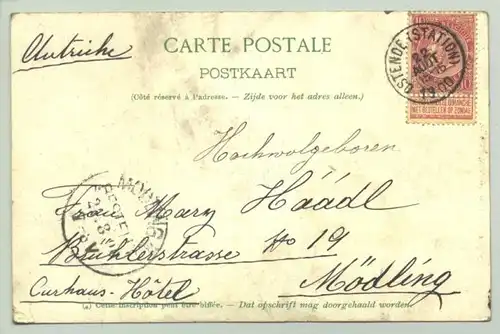 Autriche
CARTE POSTALE
POSTKAART
(Côté réservé à l'adresse. – Zijde voor het adres alleen.)
OSTENDE (STATION)
22
AOUT
NIET BESTELLEN OP ZONDAG
Hochwolgeboren
Frau Mary Háádl
Bühlerstrasse No 19
Curhaus-Hôtel Mödling
(a) Cette inscription peut être biffée. – Dat opschrift mag doorgehaald worden.